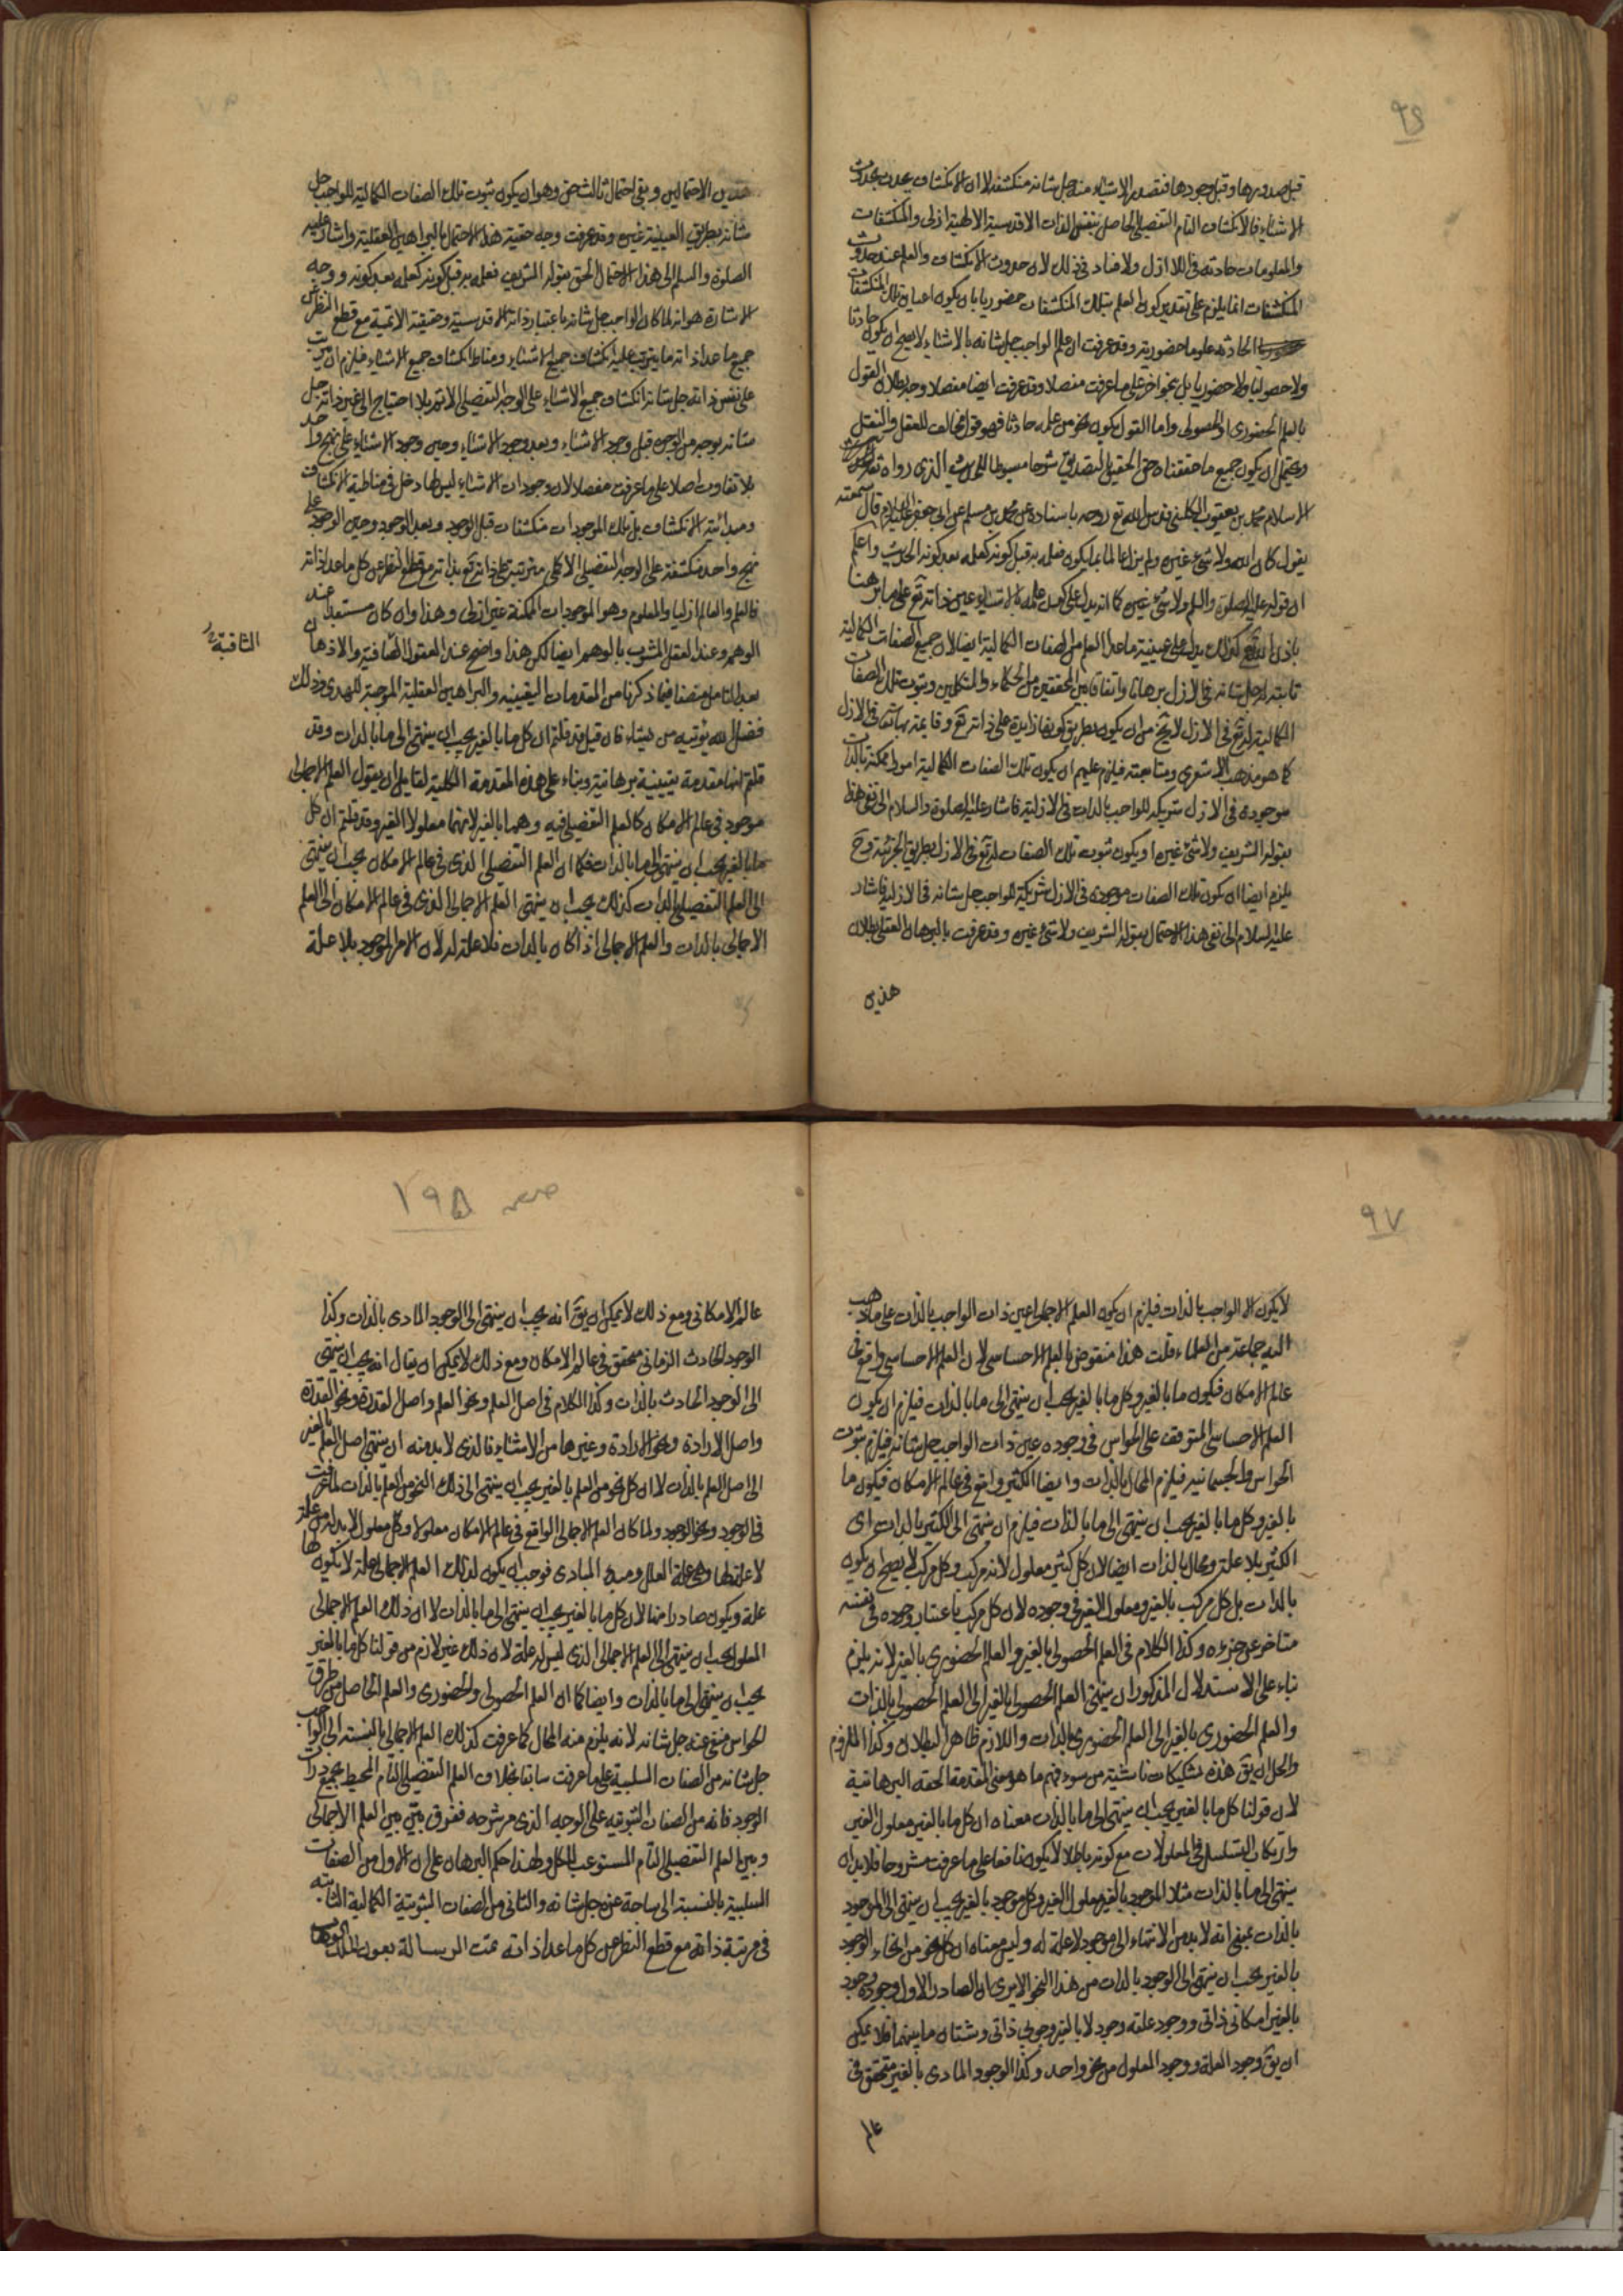 ٩٦
قبل صدورها وقبل وجودها فتصدر الاشياء منه جل شانه منكشفة لا ان الانكشاف يحدث بحدوث
الاشياء فالانكشاف التام التفصيلى الحاصل بنفس الذات الاقدسية الالهية ازلى والمنكشفات
والمعلومات حادثة فى اللاازل ولا فساد فى ذلك لان حدوث الانكشاف والعلم عند حدوث
المنكشفات انما يلزم على تقدير كون العلم بتلك المنكشفات حضوريا بان يكون اعيان تلك المنكشفات
الحادثة علوما حضورية وقد عرفت ان علم الواجب جل شانه بالاشياء لا يصح ان يكون حادثا
ولا حصوليا ولا حضوريا بل بنحو اخر على ما عرفت مفصلا وقد عرفت ايضا مفصلا وجه بطلان القول
بالعلم الحضورى او الحصولى واما القول بكون نحو من علمه حادثا فهو قول مخالف للعقل والنقل
ويحتمل ان يكون جميع ما حققناه حق التحقيق بالتصديق شرحا مبسوطا للحديث الذى رواه ثقة
الاسلام محمد بن يعقوب الكلينى قدس الله تع روحه باسناده عن محمد بن مسلم عن ابى جعفر عليه السلام قال سمعته
يقول كان الله ولا شئ غيره ولم يزل عالما بما يكون فعلمه به قبل كونه كعلمه بعد كونه الحديث واعلم
ان قوله عليه الصلوة والسلم ولا شئ غيره كما انه يدل على كون علمه بالاشياء عين ذاته تع على ما برهنا
باذن الله تع كذلك يدل على عينية ماعدا العلم من الصفات الكمالية ايضا لان جميع الصفات الكمالية
ثابتة له جل شانه فى الازل برهانا واتفاقا من المحققين من الحكماء والمتكلمين وثبوت تلك الصفات
الكمالية له تع فى الازل لا يخ من ان يكون بطريق كونها زايدة على ذاته تع وقايمة به تع فى الازل
كما هو مذهب الاشعرى ومتابعيه فيلزم عليهم ان يكون تلك الصفات الكمالية امورا ممكنة بالذات
موجودة فى الازل شريكة للواجب بالذات فى الازلية فاشار عليه الصلوة والسلام الى نفى هذا
بقوله الشريف ولا شئ غيره او يكون ثبوت تلك الصفات له تع فى الازل بطريق الجزئية وح
يلزم ايضا ان يكون تلك الصفات موجودة فى الازل شريكة للواجب جل شانه فى الازلية فاشار
عليه السلام الى نفى هذا الاحتمال بقوله الشريف ولا شئ غيره وقد عرفت بالبرهان العقلى بطلان
هذين
هذين الاحتمالين وبقى احتمال ثالث حق وهو ان يكون ثبوت تلك الصفات الكمالية للواجب جل
شانه بطريق العينية غيره وقد عرفت وجه حقية هذا الاحتمال بالبراهين العقلية واشار عليه
الصلوة والسلم الى هذا الاحتمال الحق بقوله الشريف فعلمه به قبل كونه كعلمه بعد كونه ووجه
الاشارة هو انه لما كان الواجب جل شانه باعتبار ذاته الاقدسية وحقيقته الاتمية مع قطع النظر عن
جميع ماعدا ذاته ما يترتب عليه انكشاف جميع الاشياء ومناط انكشاف جميع الاشياء فيلزم ان يترتب
على نفس ذاته جل شانه انكشاف جميع الاشياء على الوجه التفصيلى الاتم بلا احتياج الى غير ذاته جل
شانه بوجه من الوجوه قبل وجود الاشياء وبعد وجود الاشياء وحين وجود الاشياء على نهج واحد
بلا تفاوت اصلا على ما عرفت مفصلا لان وجودات الاشياء ليس لها دخل فى مناطية الانكشاف
ومبدائية الانكشاف بل تلك الموجودات منكشفات قبل الوجود وبعد الوجود وحين الوجود على
نهج واحد منكشفة على الوجه التفصيلى الاكمل مترتبة على ذاته تع بذاته مع قطع النظر عن كل ماعدا ذاته
فالعلم والعالم ازليا والمعلوم وهو الموجودات الممكنة غير ازلى وهذا وان كان مستبعدا عند
الوهم وعند العقل المشوب بالوهم ايضا لكن هذا واضح عند العقول الصافية والاذهان
الثاقبة
بعد التامل منصفا فيما ذكرنا من المقدمات اليقينية والبراهين العقلية الموجبة للهدى وذلك
فضل الله يؤتيه من يشاء فان قيل قد قلتم ان كل ما بالغير يجب ان ينتهى الى ما بالذات وقد
قلتم انها مقدمة يقينية برهانية وبناء على هذه المقدمة الكلية لقايل ان يقول العلم الاجمالى
موجود فى عالم الامكان كالعلم التفصيلى فيه وهما بالغير لانهما معلولا الغير وقد قلتم ان كل
ما بالغير يجب ان ينتهى الى ما بالذات فكما ان العلم التفصيلى الذى فى عالم الامكان يجب ان ينتهى
الى العلم التفصيلى بالذات كذلك يجب ان ينتهى العلم الاجمالى الذى فى عالم الامكان الى العلم
الاجمالى بالذات والعلم الاجمالى اذا كان بالذات فلا علة له لان الامر الموجود بلا علة
٩٧
لا يكون الا الواجب بالذات فيلزم ان يكون العلم الاجمالى عين ذات الواجب بالذات على ما ذهب
اليه جماعة من العلماء قلت هذا منقوض بالعلم الاحساسى لان العلم الاحساسى واقع فى
عالم الامكان فيكون ما بالغير وكل ما بالغير يجب ان ينتهى الى ما بالذات فيلزم ان يكون
العلم الاحساسى المتوقف على الحواس فى وجوده عين ذات الواجب جل شانه فيلزم ثبوت
الحواس والجسمانية فيلزم المحال بالذات وايضا الكثير واقع فى عالم الامكان فيكون ما
بالغير وكل ما بالغير يجب ان ينتهى الى ما بالذات فيلزم ان ينتهى الى الكثير بالذات اى
الكثير بلا علة ومحال بالذات ايضا لان كل كثير معلول لانه مركب وكل مركب لا يصح ان يكون
بالذات بل كل مركب بالغير ومعلول الغير فى وجوده لان كل مركب باعتبار وجوده فى نفسه
متاخر عن جزءه وكذا الكلام فى العلم الحصولى بالغير والعلم الحضورى بالغير لانه يلزم
بناء على الاستدلال المذكور ان ينتهى العلم الحصولى بالغير الى العلم الحصولى بالذات
والعلم الحضورى بالغير الى العلم الحضورى بالذات واللازم ظاهر البطلان وكذا الملزوم
والحل ان يق هذه تشكيكات ناشئة من سوء فهم ما هو معنى المقدمة الحقة البرهانية
لان قولنا كل ما بالغير يجب ان ينتهى الى ما بالذات معناه ان كل ما بالغير معلول الغير
وارتكاب التسلسل فى المعلولات مع كونه باطلا لا يكون نافعا على ما عرفت مشروحا فلا بد ان
ينتهى الى ما بالذات مثلا الموجود بالغير معلول الغير وكل موجود بالغير يجب ان ينتهى الى الموجود
بالذات بمعنى انه لا بد من الانتهاء الى موجود لا علة له وليس معناه ان كل نحو من انحاء الوجود
بالغير يجب ان ينتهى الى الوجود بالذات من هذا النحو الا يرى ان الصادر الاول وجوده وجود
بالغير امكانى ذاتى ووجود علته وجود لا بالغير وجوبى ذاتى وشتان ما بينهما فلا يمكن
ان يق وجود العلة ووجود المعلول من نحو واحد وكذا الوجود المادى بالغير متحقق فى
عالم
صفحه ١٩٥
عالم الامكانى ومع ذلك لا يمكن ان يق انه يجب ان ينتهى الى الوجود المادى بالذات وكذا
الوجود الحادث الزمانى متحقق فى عالم الامكان ومع ذلك لا يمكن ان يقال انه يجب ان ينتهى
الى الوجود الحادث بالذات وكذا الكلام فى اصل العلم ونحو العلم واصل القدرة ونحو القدرة
واصل الارادة ونحو الارادة وغيرها من الاشياء فالذى لا بد منه ان ينتهى اصل العلم بالغير
الى اصل العلم بالذات لا ان كل نحو من العلم بالغير يجب ان ينتهى الى ذلك النحو من العلم بالذات لما عرفت
فى الوجود ونحو الوجود ولما كان العلم الاجمالى الواقع فى عالم الامكان معلولا وكل معلول لا بد له من علة
لا علة لها وهى علة العلل ومبدء المبادى فوجب ان يكون لذلك العلم الاجمالى علة لا يكون لها
علة ويكون صادرا منها لان كل ما بالغير يجب ان ينتهى الى ما بالذات لا ان ذلك العلم الاجمالى
المعلول يجب ان ينتهى الى العلم الاجمالى الذى ليس له علة لان ذلك غير لازم من قولنا كل ما بالغير
يجب ان ينتهى الى ما بالذات وايضا كما ان العلم الحصولى والحضورى والعلم الحاصل من طرق
الحواس منفى عنه جل شانه لانه يلزم منه المحال كما عرفت كذلك العلم الاجمالى بالنسبة الى الواجب
جل شانه من الصفات السلبية على ما عرفت سابقا بخلاف العلم التفصيلى التام المحيط بجميع ذرات
الوجود فانه من الصفات الثبوتية على الوجه الذى مر شرحه ففرق بين بين العلم الاجمالى
وبين العلم التفصيلى التام المستوعب للكل ولهذا حكم البرهان على ان الاول من الصفات
السلبية بالنسبة الى ساحة عزه جل شانه والثانى من الصفات الثبوتية الكمالية الثابتة
فى مرتبة ذاته مع قطع النظر عن كل ماعدا ذاته تمت الرسالة بعون الملك الوهاب